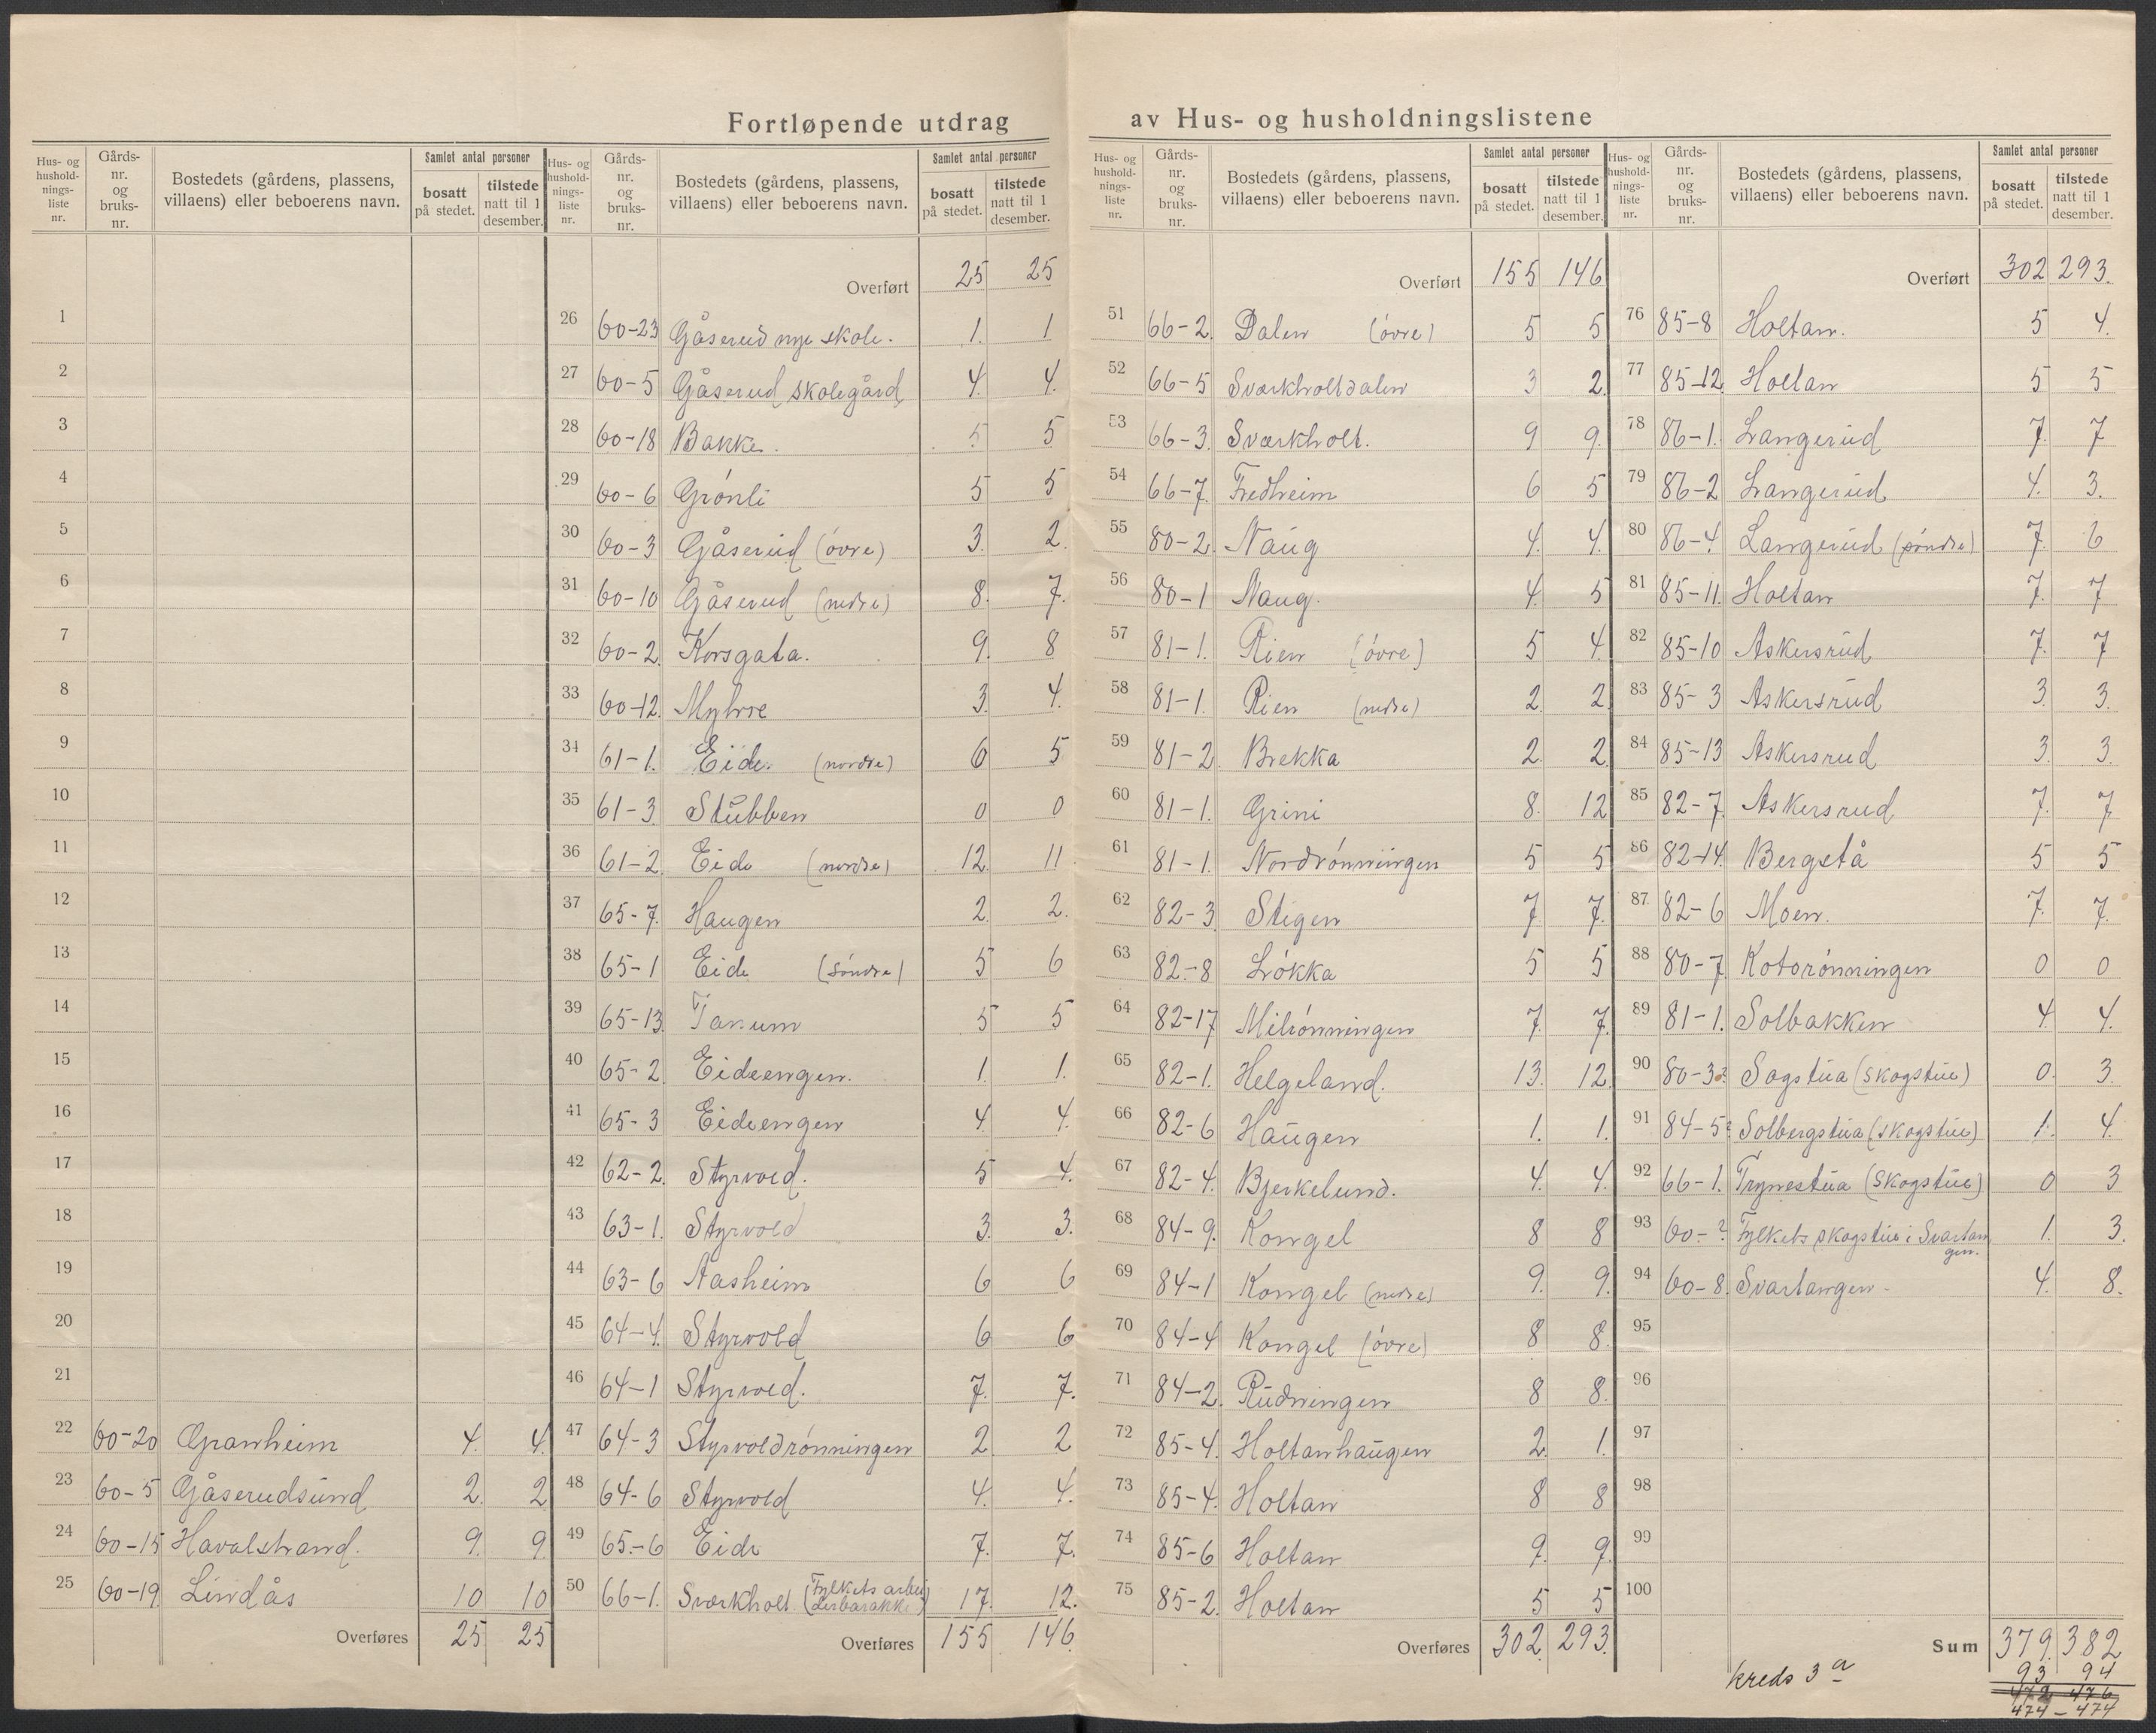 Fortløpende utdrag av Hus- og husholdningslistene
Hus- og hushold-nings-liste nr. | Gårds-nr. og bruks-nr. | Bostedets (gårdens, plassens, villaens) eller beboerens navn. | Samlet antal personer | bosatt på stedet. | tilstede natt til 1 desember.
1
2
3
4
5
6
7
8
9
10
11
12
13
14
15
16
17
18
19
20
21
22 60-20 Granheim 4. 4.
23 60-5 Gåserudsund 2. 2
24 60-15 Havalstrand. 9. 9
25 60-19 Lindås 10 10
Overføres 25 25
Hus- og hushold-nings-liste nr. | Gårds-nr. og bruks-nr. | Bostedets (gårdens, plassens, villaens) eller beboerens navn. | Samlet antal personer | bosatt på stedet. | tilstede natt til 1 desember.
Overført 25 25
26 60-23 Gåserud nye skole. 1. 1
27 60-5 Gåserud skolegård 4. 4.
28 60-18 Bakke. 5 5
29 60-6 Grónli 5 5
30 60-3 Gåserud (óvre) 3. 2.
31 60-10 Gåserud (nedre) 8. 7.
32 60-2. Korsgata. 9. 8
33 60-12. Myhre 3. 4.
34 61-1. Eide. (nordre) 6 5
35 61-3. Stubben 0 0
36 61-2. Eide (nordre) 12. 11
37 65-7. Haugen 2. 2.
38 65-1 Eide (Sóndre) 5 6
39 65-13. Tanum 5 5
40 65-2 Eideengen. 1. 1.
41 65-3 Eideengen 4. 4.
42 62-2. Styrvold. 5 4.
43 63-1. Styrvold 3. 3.
44 63-6 Aasheim 6 6
45 64-4. Styrvold 6 6
46 64-1 Styrvold. 7. 7.
47 64-3 Styrvoldrónningen 2. 2
48 64-6 Styrvold 4. 4.
49 65-6 Eide 7. 7.
50 66-1. Sværkholt (Fylkets arbei
derbarakke) 17. 12.
Overføres 155 146
Hus- og hushold-nings-liste nr. | Gårds-nr. og bruks-nr. | Bostedets (gårdens, plassens, villaens) eller beboerens navn. | Samlet antal personer | bosatt på stedet. | tilstede natt til 1 desember.
Overført 155 146
51 66-2. Dalen (óvre) 5 5
52 66-5 Sværkholtdalen 3 2.
53 66-3. Sværkholt. 9 9.
54 66-7. Fredheim 6 5
55 80-2. Naug 4. 4.
56 80-1 Naug. 4. 5
57 81-1. Rien (óvre) 5 4.
58 81-1. Rien (nedre) 2. 2
59 81-2. Brekka 2. 2
60 81-1. Grini 8. 12
61 81-1. Nordrónningen 5 5
62 82-3. Stigen 7. 7.
63 82-8 Lókka 5 5
64 82-17 Milrónningen 7. 7.
65 82-1. Helgeland. 13. 12.
66 82-6 Haugen 1. 1.
67 82-4. Bjerkelund. 4. 4.
68 84-9. Kongel 8 8
69 84-1 Kongel (nedre) 9. 9.
70 84-4 Kongel (óvre) 8 8.
71 84-2. Rudningen 8 8.
72 85-4. Holtanhaugen 2. 1.
73 85-4. Holtan 8 8
74 85-6 Holtan 9. 9.
75 85-2. Holtan 5 5
Overføres 302. 293.
Hus- og hushold-nings-liste nr. | Gårds-nr. og bruks-nr. | Bostedets (gårdens, plassens, villaens) eller beboerens navn. | Samlet antal personer | bosatt på stedet. | tilstede natt til 1 desember.
Overført 302 293.
76 85-8 Holtan. 5 4.
77 85-12. Holtan 5 5
78 86-1. Langerud 7. 7
79 86-2 Langerud 4. 3.
80 86-4. Langerud (söndre) 7. 6
81 85-11. Holtan 7. 7
82 85-10 Askersrud 7. 7
83 85-3 Askersrud 3. 3.
84 85-13 Askersrud 3. 3.
85 82-7. Askersrud 7. 7
86 82-14. Bergstå 5 5
87. 82-6 Moen. 7. 7.
88 80-7. Kotorónningen 0 0
89 81-1. Solbakken 4. 4.
90 80-3? Sagstua (skogstue) 0. 3.
91 84-5? Solbergstua (skogstue) 1. 4.
92 66-1. Trynestua (Skogstue) 0 3
93 60-? Fylkets skogstue i Svartan
gen. 1. 3.
94 60-8. Svartangen 4. 8.
95
96
97
98
99
100
Sum 379. 382
93 94
472 476
474 - 474
Kreds 3 a